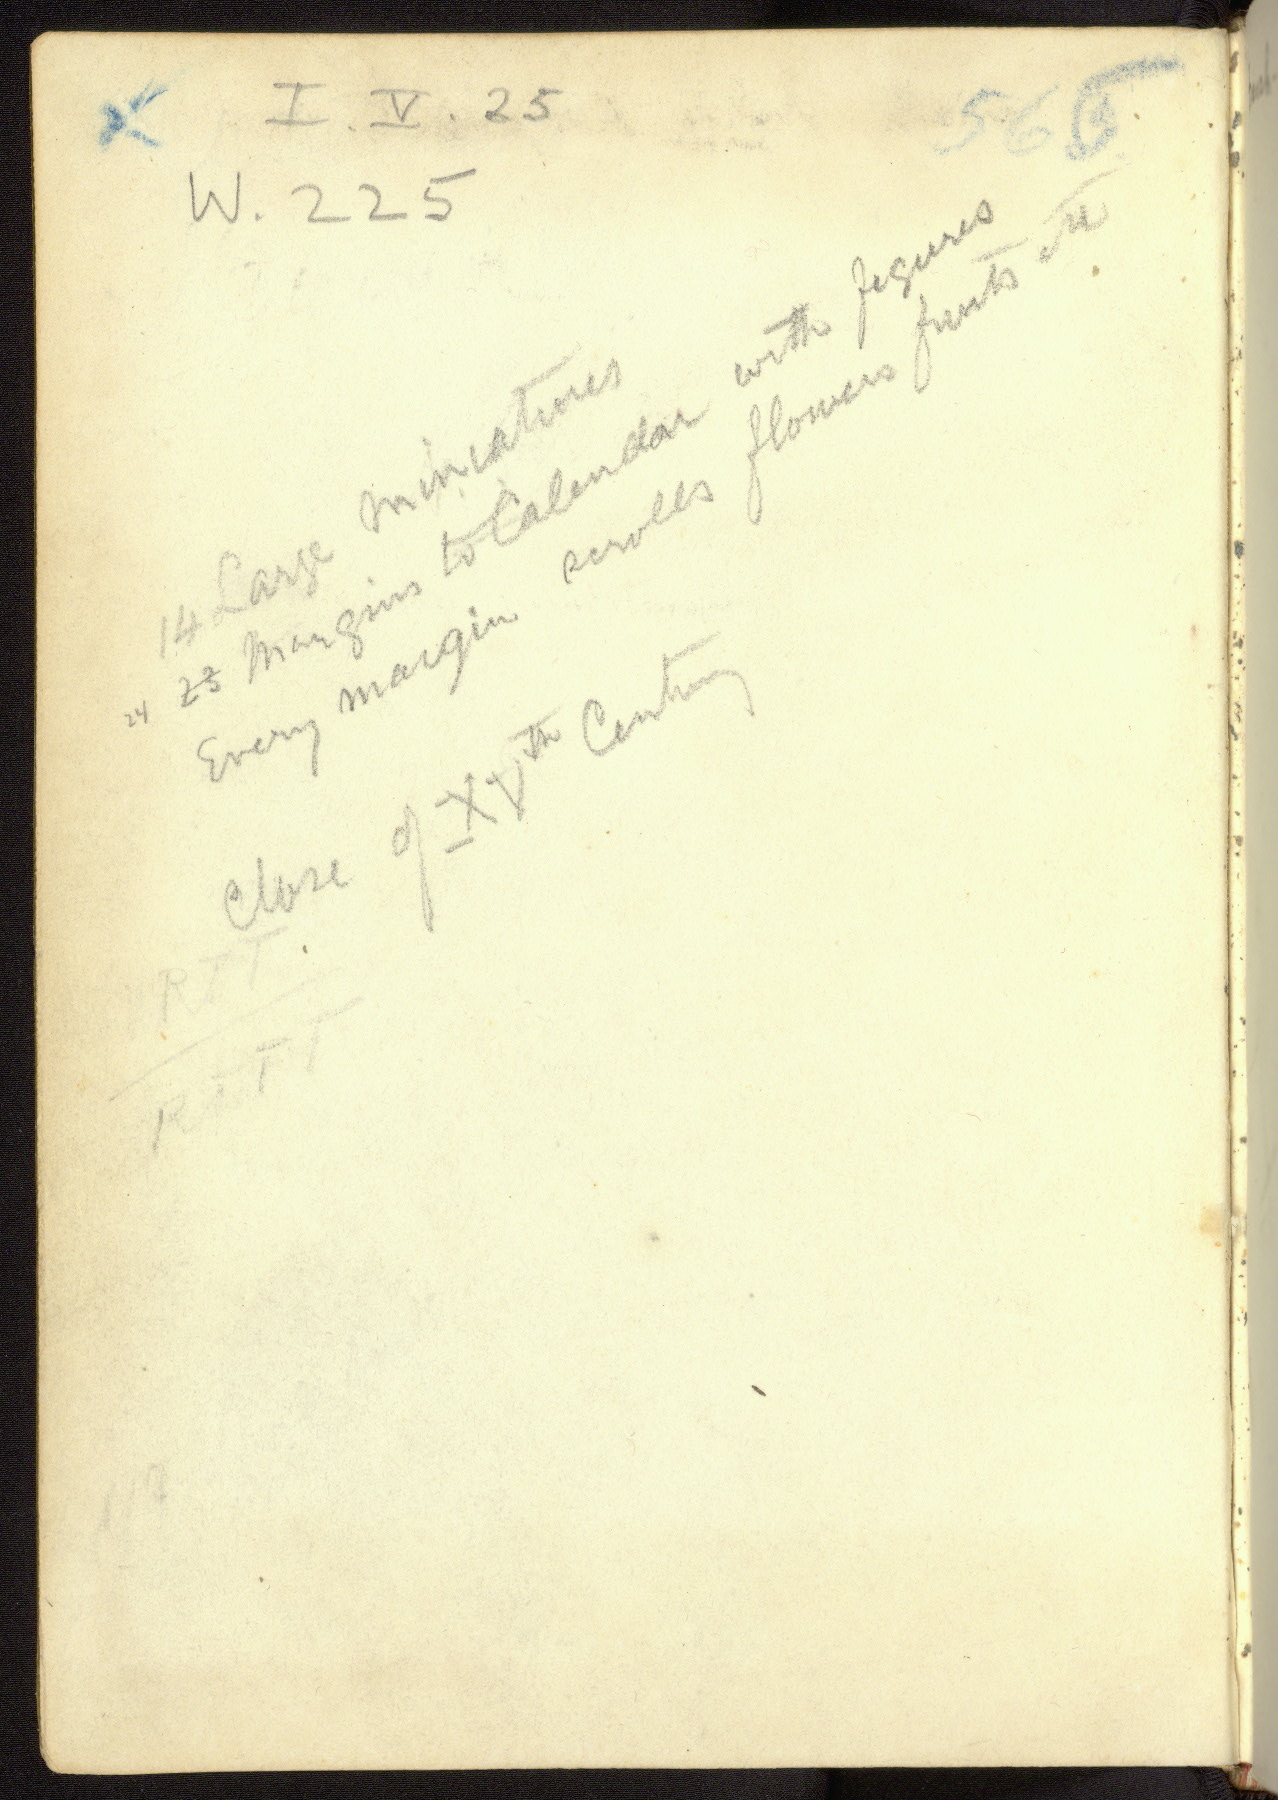 I. V. 25
565
W. 225
14 Large miniatures
24 23 Margins to Calendar with figures
Every margin scrolls flowers fruits etc
Close of XVth Century
RTT